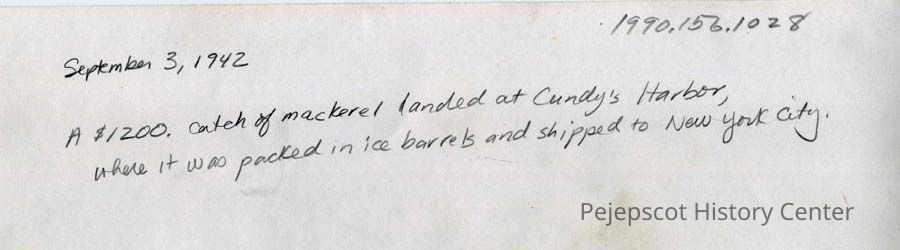 1990.156.1028
September 3, 1942
A $1200. catch of mackerel landed at Cundy's Harbor,
where it was packed in ice barrels and shipped to New York City.
Pejepscot History Center